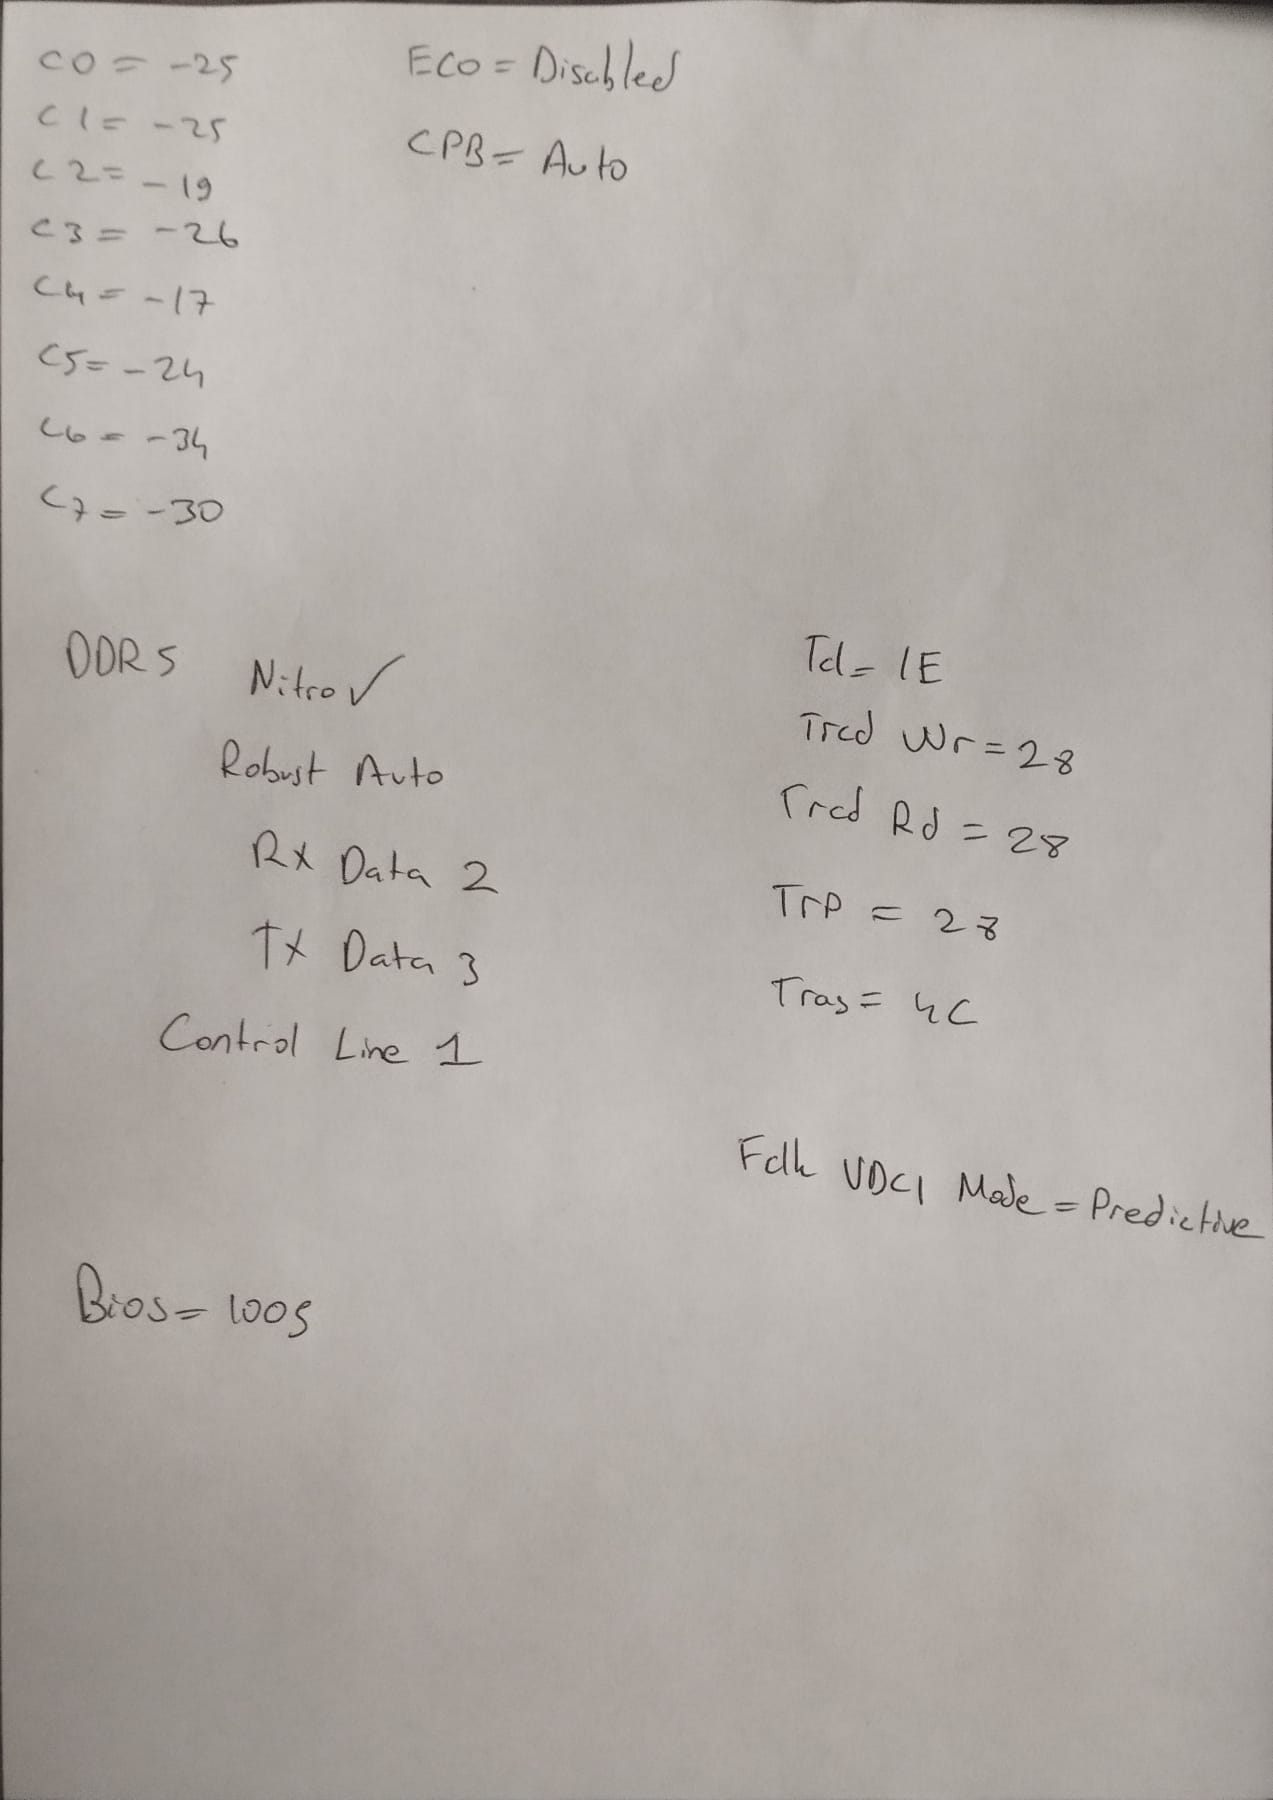 C0 = -25
C1 = -25
C2 = -19
C3 = -26
C4 = -17
C5 = -24
C6 = -34
C7 = -30
ECO = Disabled
CPB = Auto
DDR5 Nitro ✓
Robust Auto
Rx Data 2
Tx Data 3
Control Line 1
Tcl = 1E
Trcd Wr = 28
Trcd Rd = 28
Trp = 28
Tras = 4C
Fclk VDCI Mode = Predictive
Bios = 1005